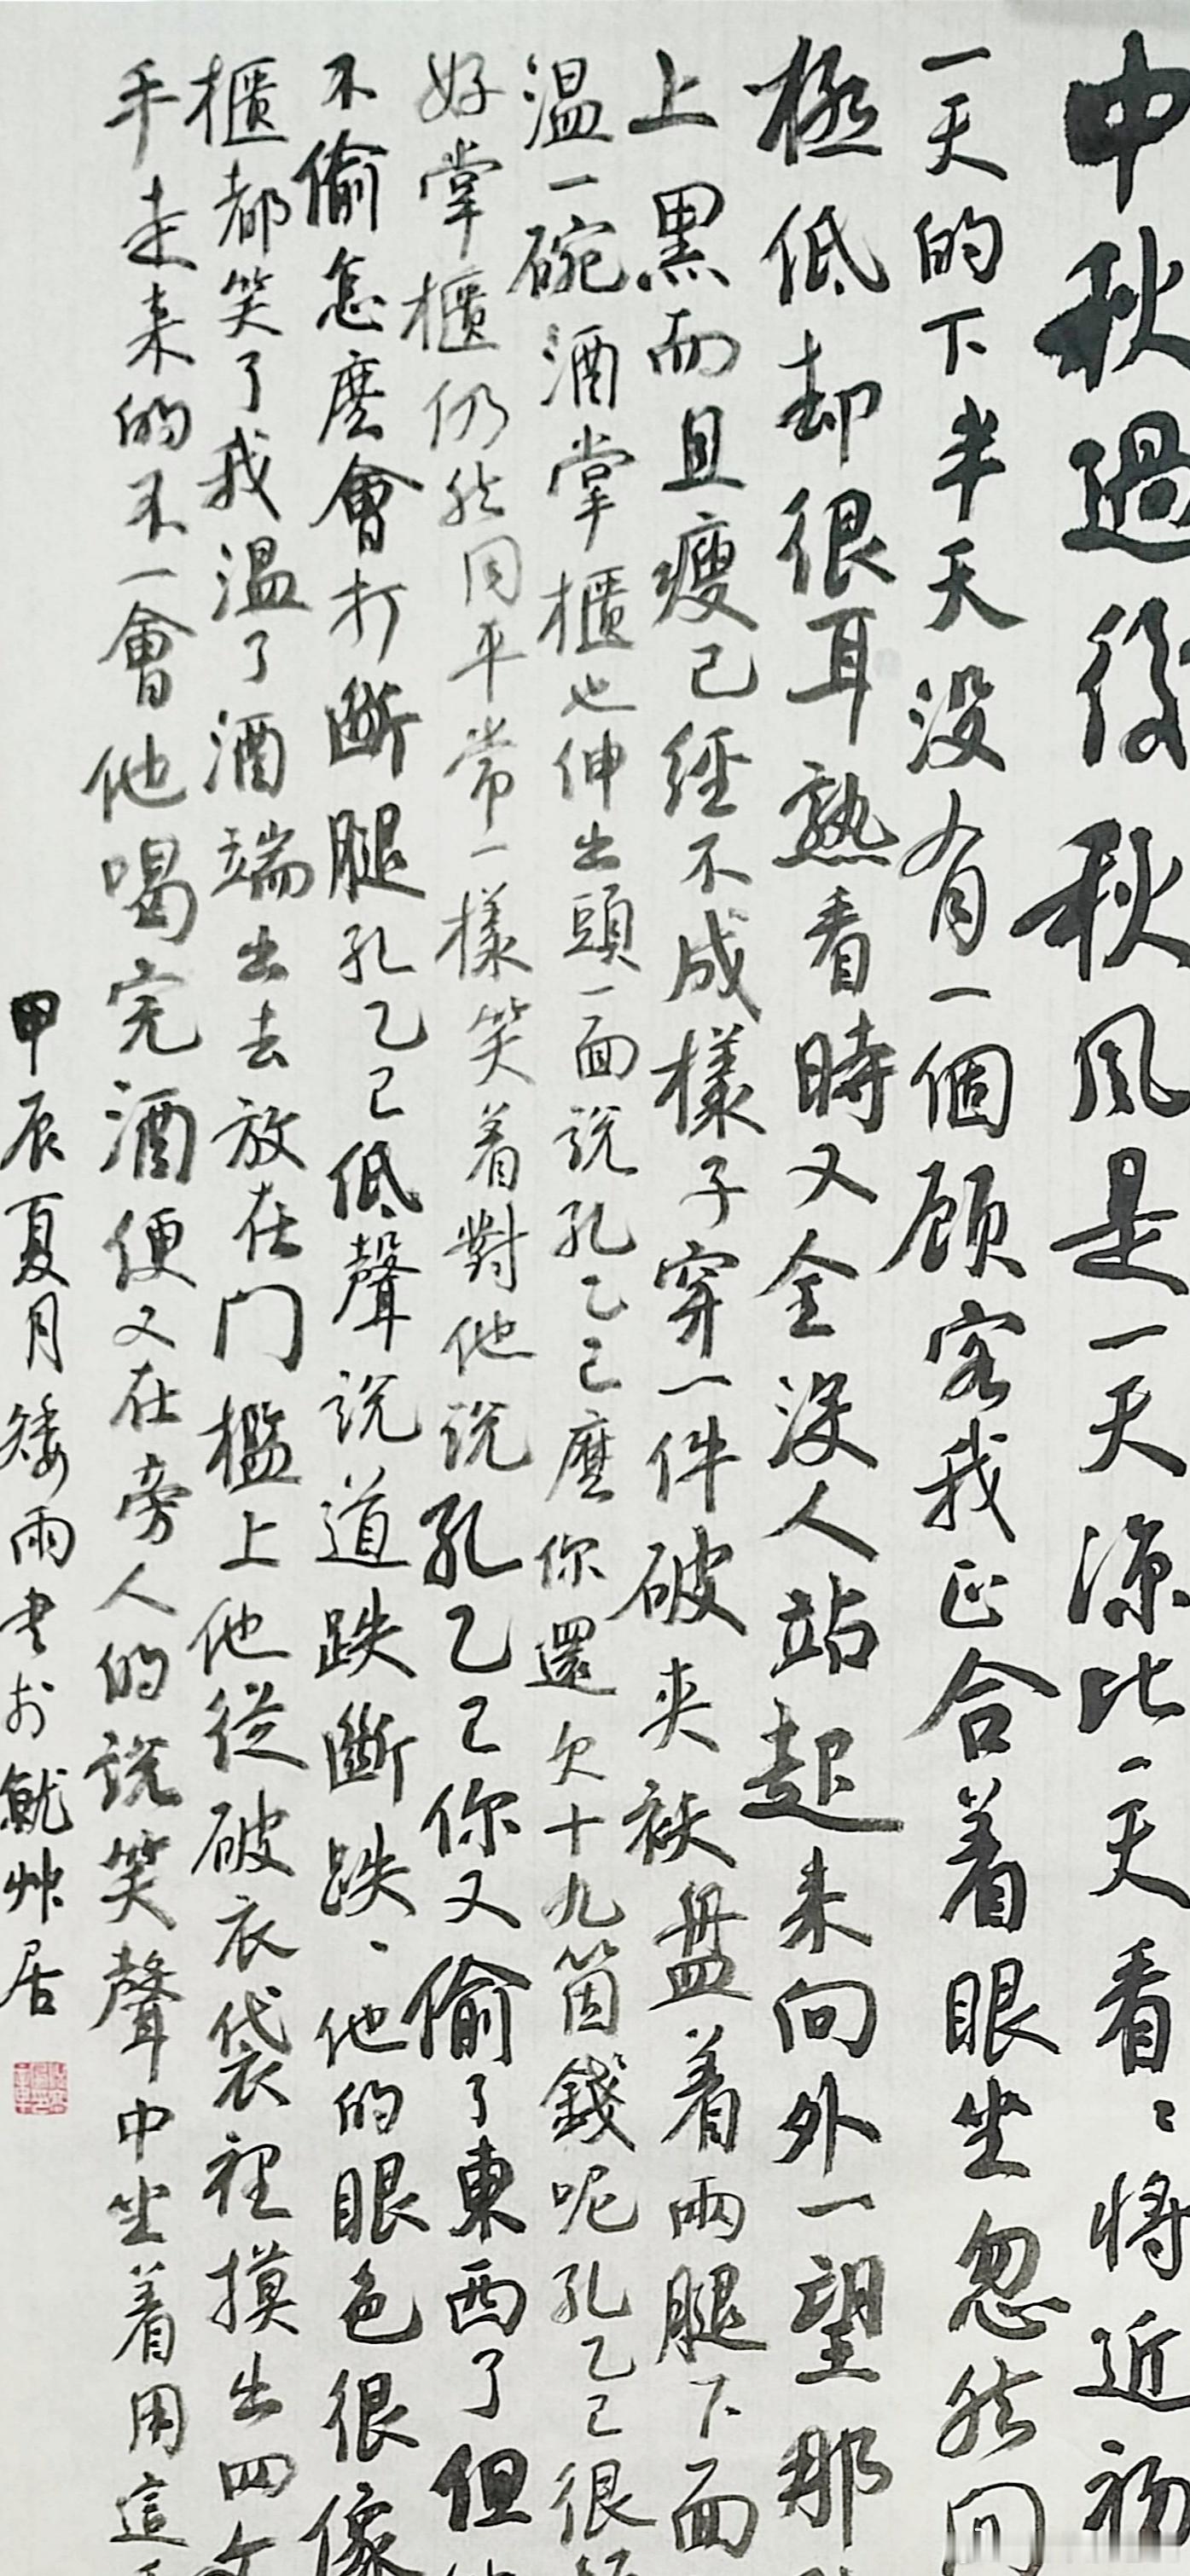 中秋過後秋風是一天涼比一天看看將近初
一天的下半天没有一個顾客我正合着眼坐忽然间
極低却很耳熟看時又全没人站起来向外一望那
上黑而且瘦已經不成樣子穿一件破夹袄盘着兩腿下面
温一碗酒掌櫃也伸出頭一面説孔乙己麽你還欠十九箇錢呢孔乙己很
好掌櫃仍然同平常一樣笑着對他説孔乙己你又偷了東西了但
不偷怎麽會打斷腿孔乙己低聲説道跌斷跌、他的眼色很像
櫃都笑了我温了酒端出去放在门檻上他從破衣袋裡摸出四文
手走来的不一會他喝完酒便又在旁人的説笑聲中坐着用這手
甲辰夏月矮雨书於艸居